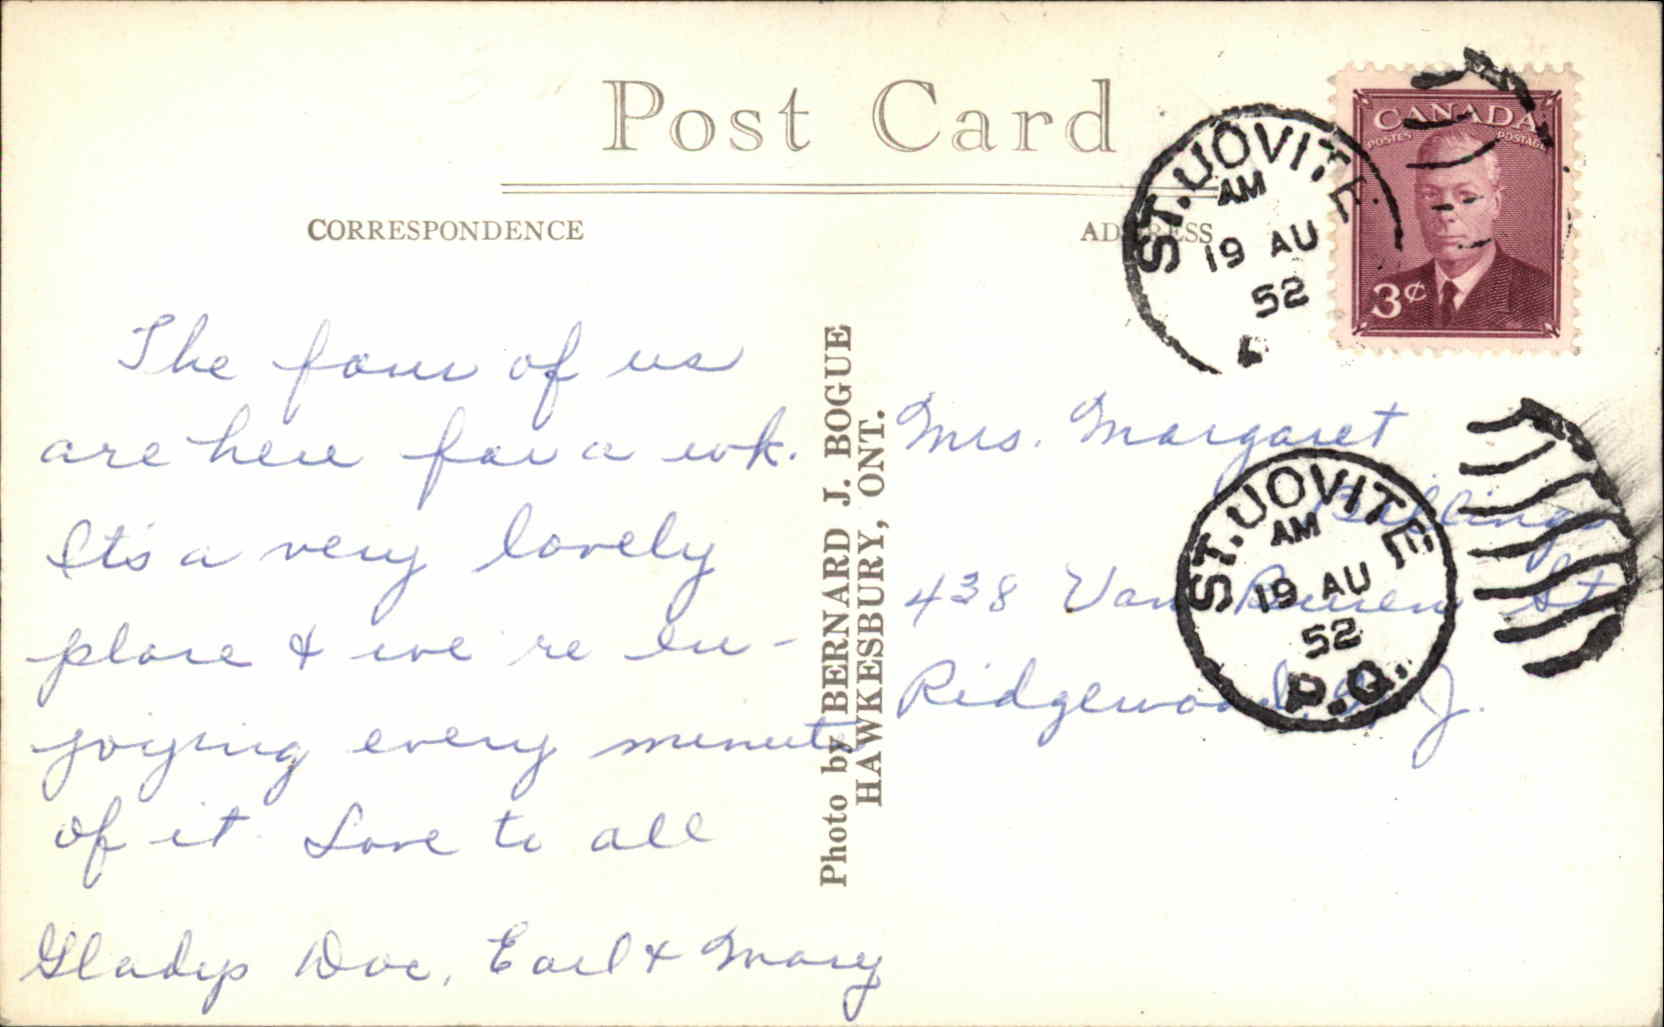 Post Card
CORRESPONDENCE
ADDRESS
CANADA
POSTES POSTAGE
3¢
ST. JOVITE
AM
19 AU
52
The four of us
are here for a wk.
It's a very lovely
place & we're en-
joying every minute
of it Love to all
Gladys Doc, Earl & Mary
Photo by BERNARD J. BOGUE
HAWKESBURY, ONT.
Mrs. Margaret
Billings
438 Van Buren St
Ridgewood, N.J.
ST. JOVITE
AM
19 AU
52
P.Q.